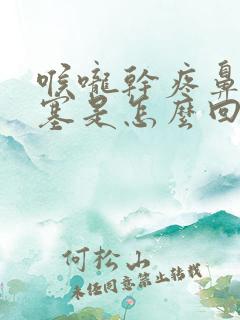 喉嚨幹疼鼻
塞是怎麼回
何松山
未经同意禁止转载